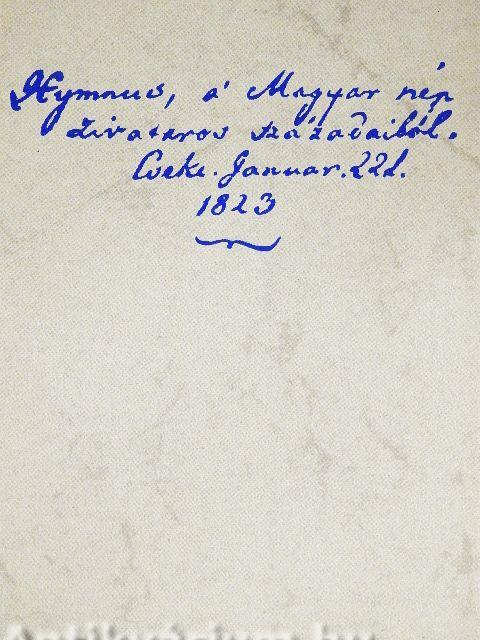 Hymnus, a' Magyar nép
zivataros századaiból.
Cseke. Januar. 22d.
1823